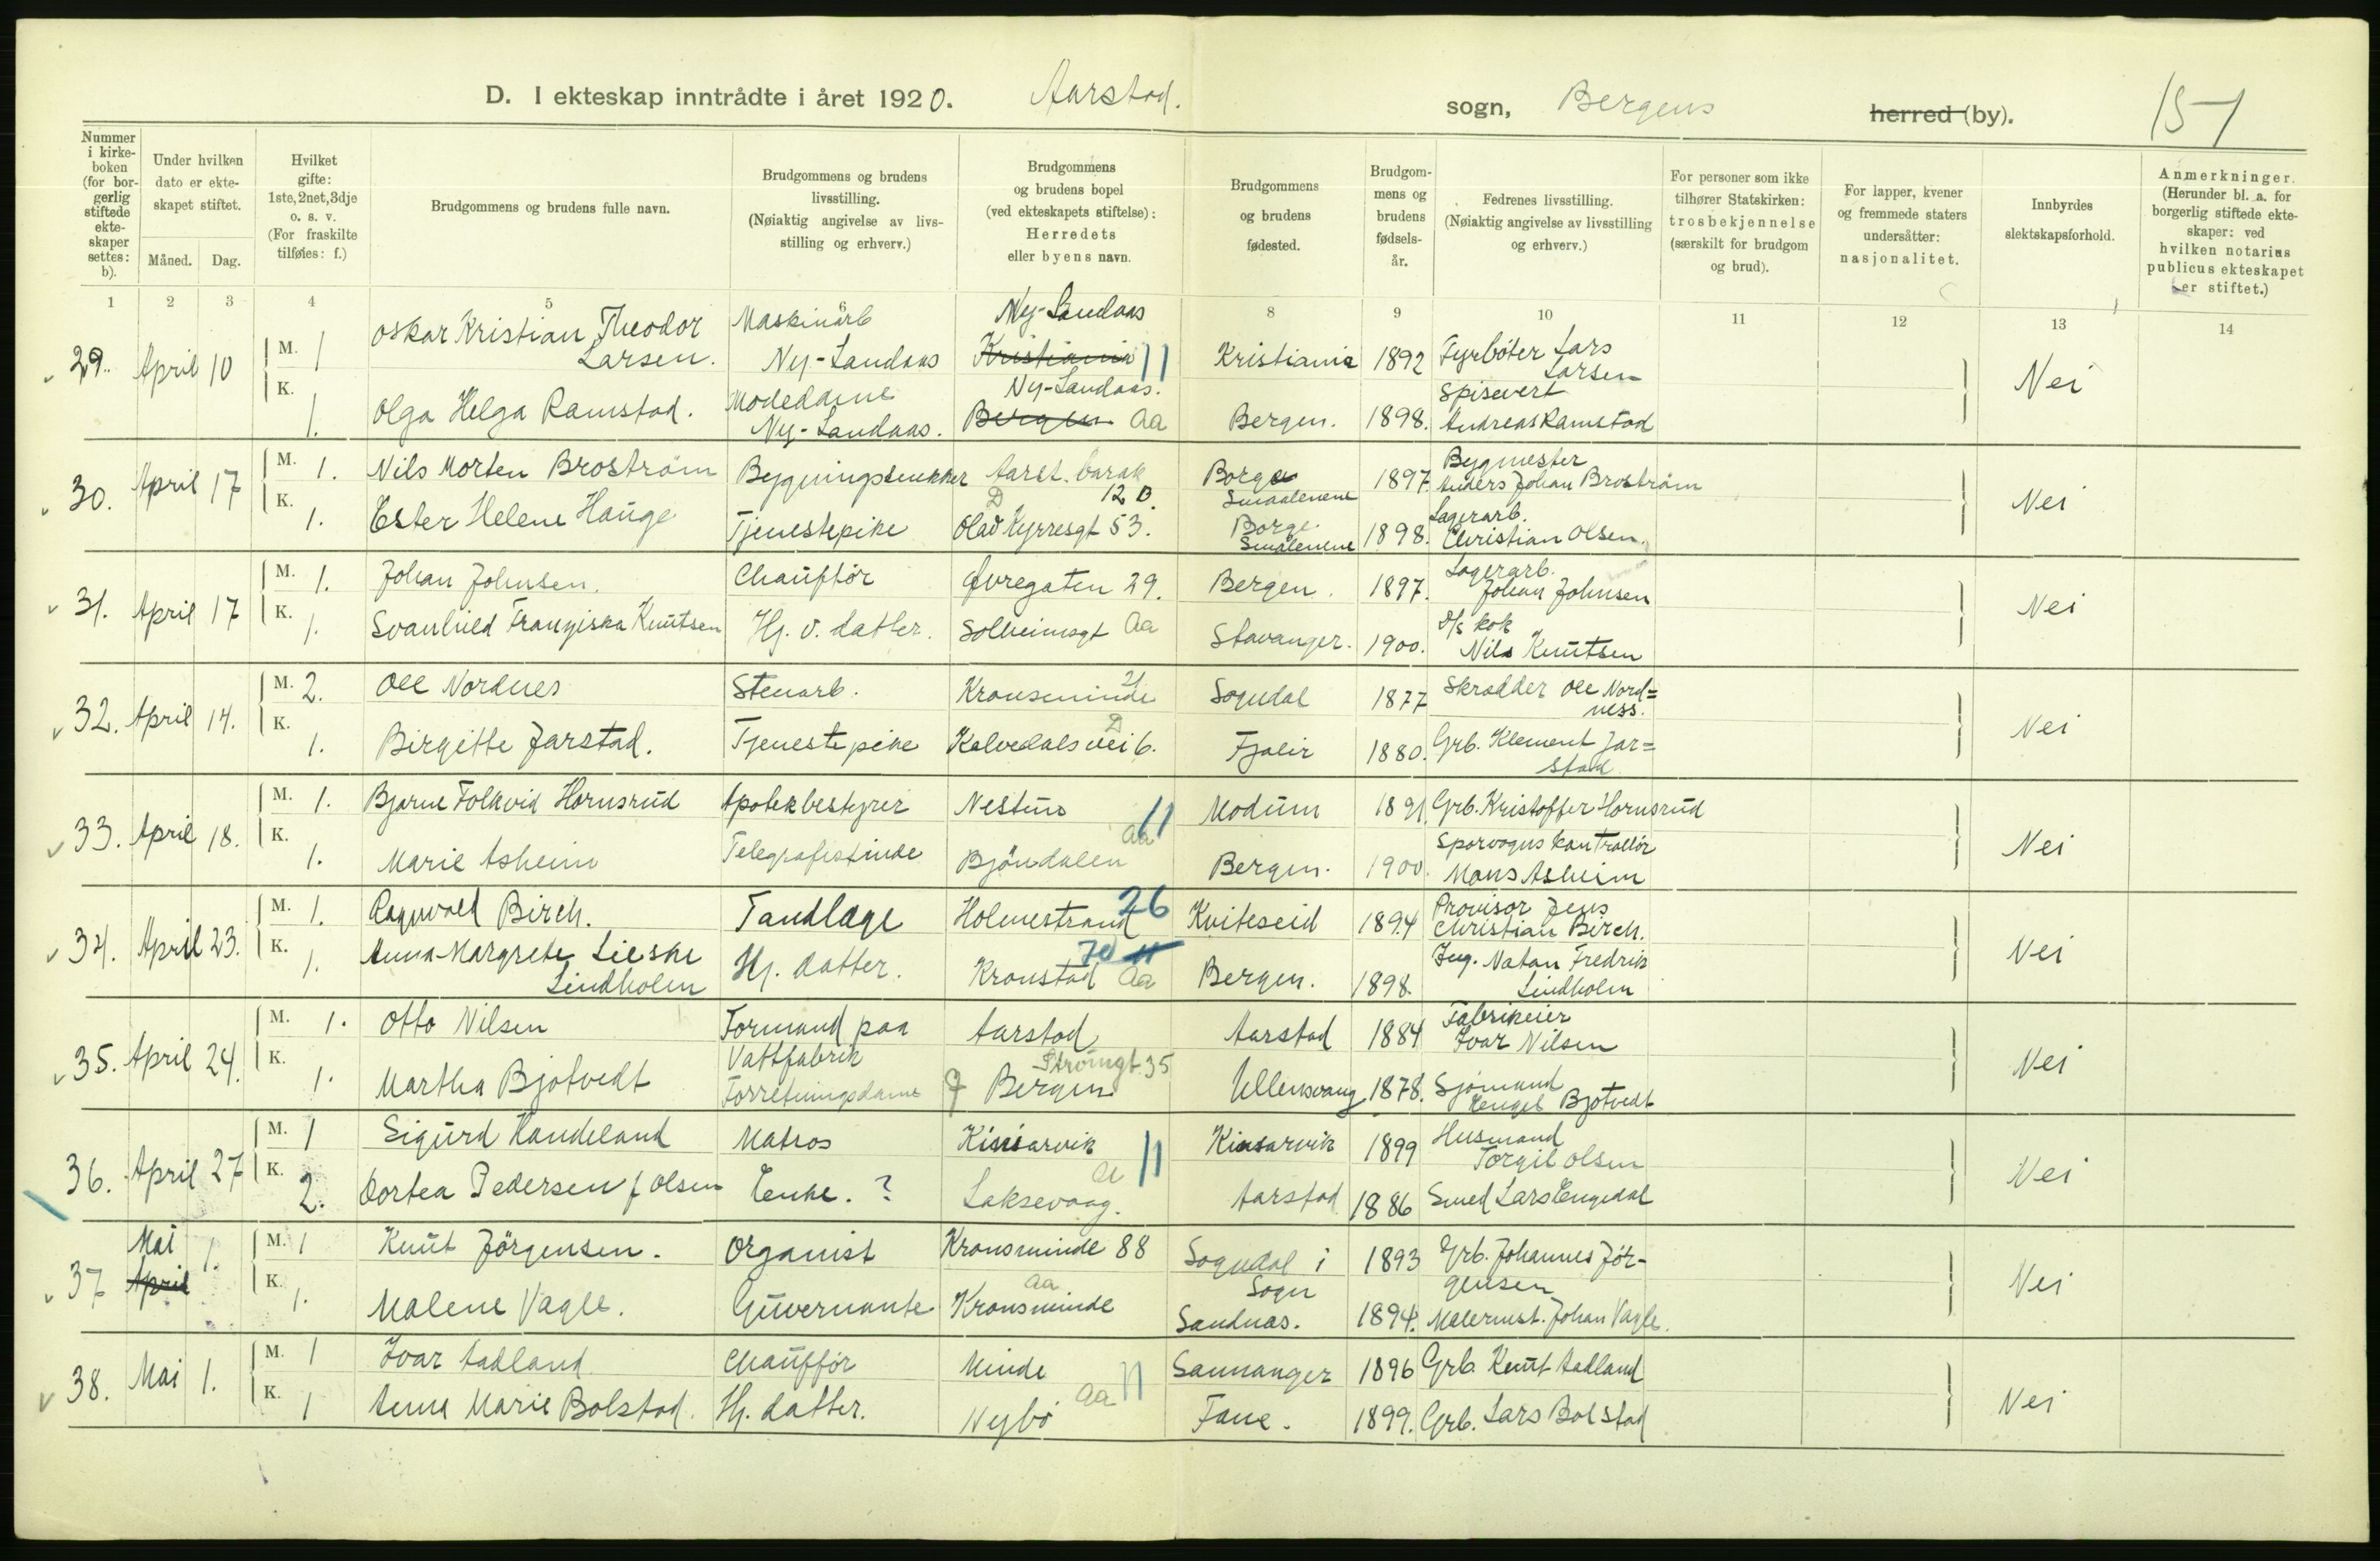 D. I ekteskap inntrådte i året 1920. Aarstad. sogn, Bergens herred (by). 151
Nummer i kirkeboken (for borgerlig stiftede ekteskaper settes: b).
Under hvilken dato er ekteskapet stiftet.
Måned. Dag.
Hvilket gifte: 1ste, 2net, 3dje o. s. v. (For fraskilte tilføies: f.)
Brudgommens og brudens fulle navn.
Brudgommens og brudens livsstilling. (Nøiaktig angivelse av livsstilling og erhverv.)
Brudgommens og brudens bopel (ved ekteskapets stiftelse): Herredets eller byens navn.
Brudgommens og brudens fødested.
Brudgommens og brudens fødselsår.
Fedrenes livsstilling. (Nøiaktig angivelse av livsstilling og erhverv.)
For personer som ikke tilhører Statskirken: trosbekjennelse (særskilt for brudgom og brud).
For lapper, kvener og fremmede staters undersåtter: nasjonalitet.
Innbyrdes slektskapsforhold.
Anmerkninger. (Herunder bl. a. for borgerlig stiftede ekteskaper: ved hvilken notarius publicus ekteskapet er stiftet.)
1 2 3 4 5 6 8 9 10 11 12 13 14
29. April 10 M. 1 Oskar Kristian Theodor Larsen. Maskinarb Ny-Landaas Ny-Landaas Kristiania 11 Kristiania 1892 Fyrbøter Lars Larsen Nei
K. 1. Olga Helga Ramstad. Modedame Ny-Landaas. Ny-Landaas. Bergen Aa Bergen. 1898. Spisevert Andreas Ramstad
30. April 17 M. 1. Nils Morten Broström Bygningssnekker Aarst. barak 12 D. Borge Smaalenene 1897. Bygmester Anders Johan Broström Nei
K. 1. Ester Helene Hauge Tjenestepike D Olav Kyrresgt 53. Borge Smålenene 1898. Lagerarb. Christian Olsen.
31. April 17 M. 1. Johan Johnsen. Chauffør Øvregaten 29. Bergen. 1897. Lagerarb. Johan Johnsen Nei
K. 1. Svanhild Franziska Knutsen Hj. v. datter. Solheimsgt Aa Stavanger. 1900. D/s kok Nils Knutsen
32. April 14. M. 2. Ole Nordnes Stenarb. Kronsminde 21 Sogndal 1877 Skrædder Ole Nord=ness. Nei
K. 1. Birgitte Jarstad. Tjenestepike Kalvedalsvei 6. D Fjaler 1880. Grb. Klement Jar=stad
33. April 18. M. 1. Bjarne Folkvid Hornsrud Apotekbestyrer Nestun 11 Modum 1891. Grb. Kristoffer Hornsrud Nei
K. 1. Marie Asheim Telegrafistinde Bjöndalen Aa Bergen. 1900. Sporvogns kontrollör Mons Asheim
34. April 23. M. 1. Ragnvald Birch. Tandlæge Holmestrand 26 Kviteseid 1894 Provisor Jens Christian Birch. Nei
K. 1. Anna Margrete Lieske Lindholm Hj. datter. Kronstad 70 11 Aa Bergen. 1898. Ing. Natan Fredrik Lindholm
35. April 24. M. 1. Otto Nilsen Formand paa Vattfabrik Aarstad Aarstad 1884 Fabrikeier Ivar Nilsen Nei
K. 1. Martha Bjotvedt Forretningsdame Strömgt. 35 Bergen Ullensvang 1878. Sjømand Bjotvedt
36. April 27 M. 1 Sigurd Handeland Matros Kinsarvik 11 Kinsarvik 1899 Husmand Torgil Olsen Nei
K. 2. Dortea Pedersen f Olsen Enke. ? Laksevaag. Aarstad 1886 Smed Lars Engedal
37 Mai April 1. M. 1 Knut Jörgensen. Organist Kronsminde 88 Sogndal i Sogn 1893 Grb. Johannes Jör-gensen Nei
K. 1. Malene Vagle. Guvernante Aa Kronsminde Sandnæs. 1894. Malermst. Johan Vagle.
38. Mai 1. M. 1 Ivar Aadland Chauffør Minde 11 Samnanger 1896 Grb. Knut Aadland Nei
K. 1 Anna Marie Bolstad. Hj. datter. Nybø Aa Fane. 1899. Grb. Lars Bolstad